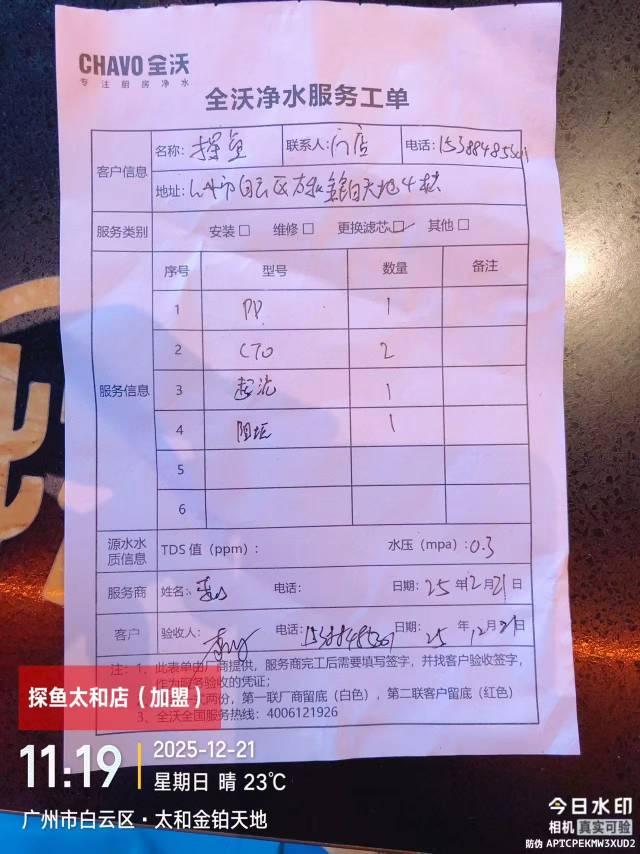 CHAVO 全沃
专注厨房净水
全沃净水服务工单
客户信息 名称: 探鱼 联系人: 门店 电话:
地址: 广州市白云区太和金铂天地4栋
服务类别 安装□ 维修□ 更换滤芯☑ 其他□
服务信息 序号 型号 数量 备注
1 PP 1
2 CTO 2
3 超沈 1
4 阻垢 1
5
6
源水水质信息 TDS 值（ppm）: 水压（mpa）: 0.3
服务商 姓名: 电话: 日期: 25 年 12 月 21 日
客户 验收人: 电话: 日期: 25 年 12 月 21 日
注: 1、此表单由厂商提供，服务商完工后需要填写签字，并找客户验收签字，
作为服务验收的凭证;
两份，第一联厂商留底（白色），第二联客户留底（红色）
3、全沃全国服务热线: 4006121926
探鱼太和店（加盟）
11:19 2025-12-21
星期日 晴 23℃
广州市白云区·太和金铂天地
今日水印
相机 真实可验
防伪 APTCPEKMW3XUD2